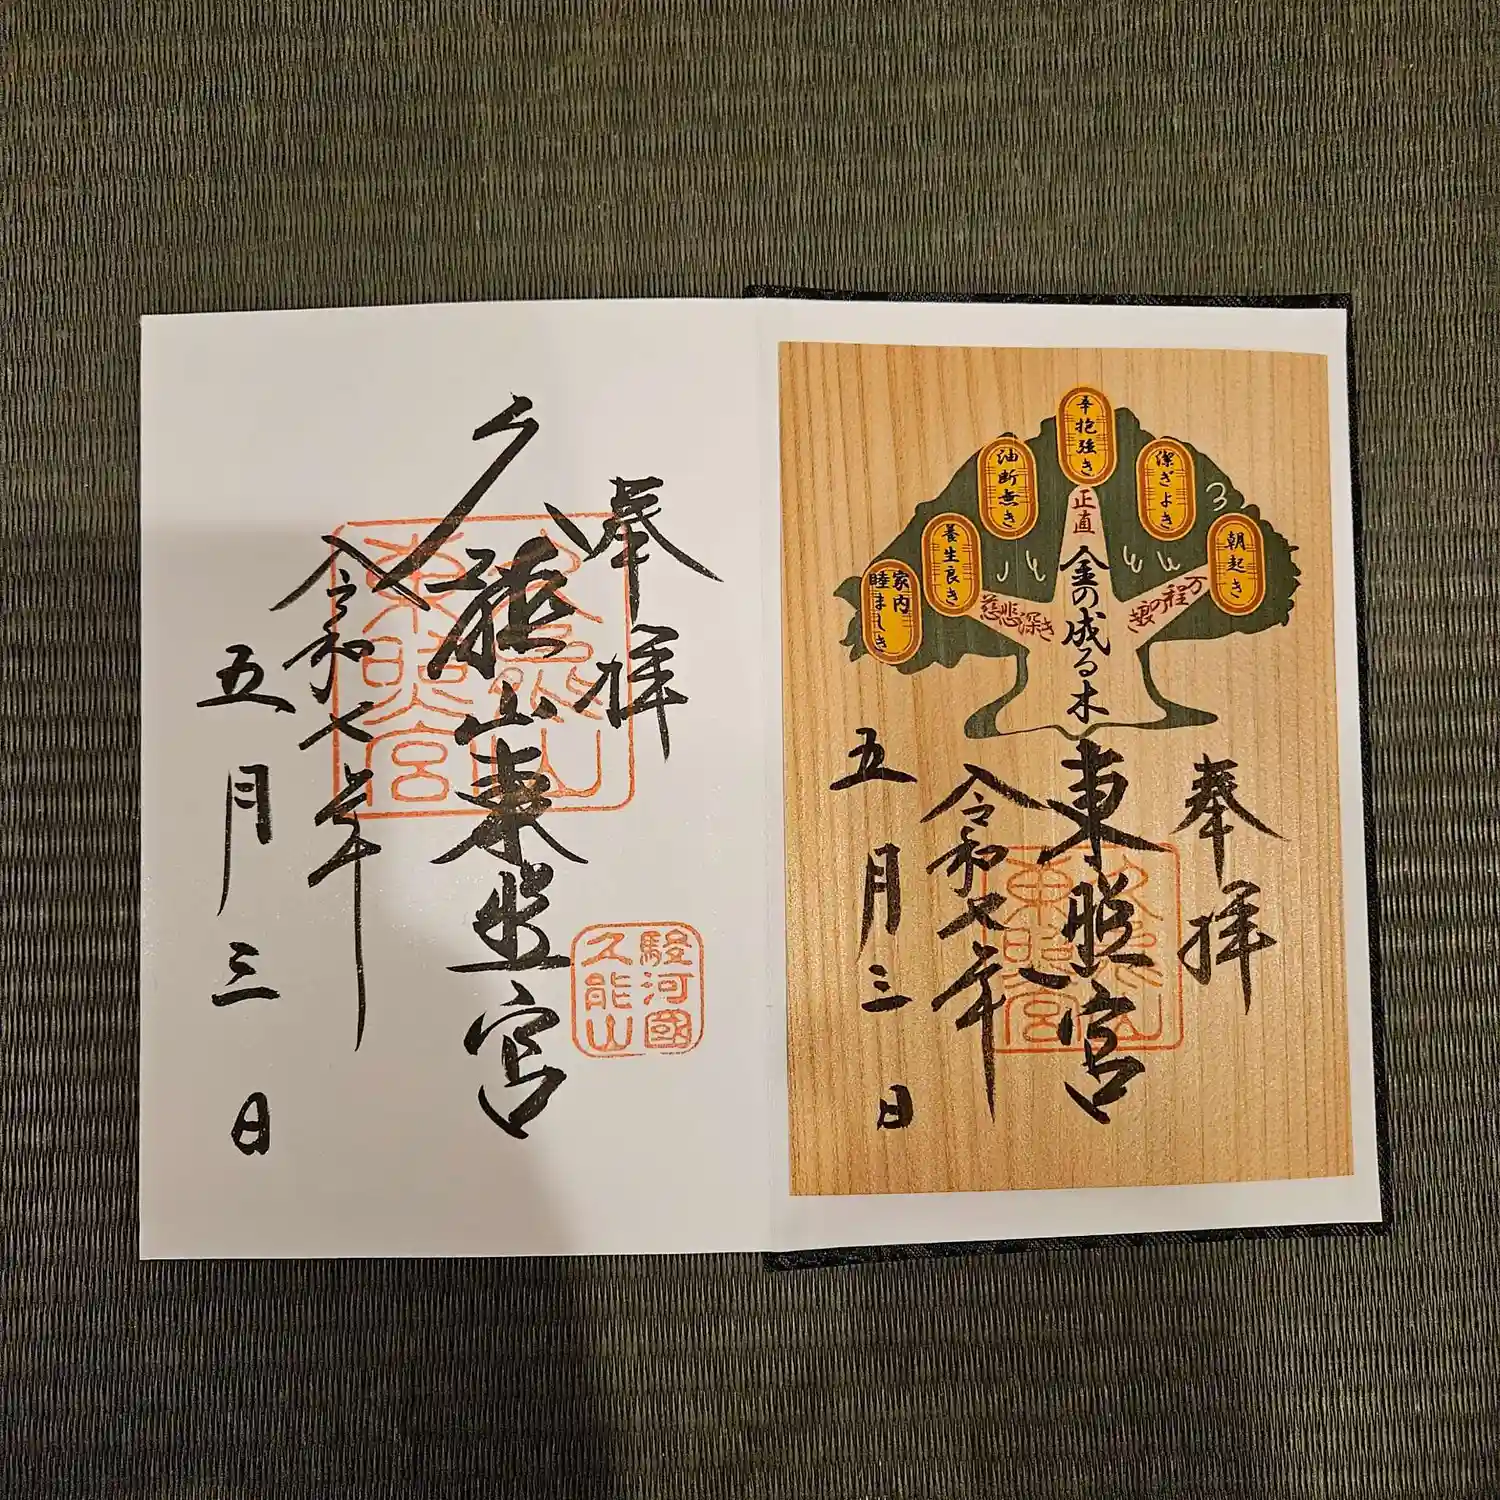 辛抱強き
潔ぎよき
油断無き
朝起き
養生良き
家内
睦ましき
正直
万程の
慈悲深き
金の成る木
奉拝
東照宮
令和七年
五月三日
奉拝
久能山東照宮
令和七年
五月三日
久能山
東照宮
駿河國
久能山